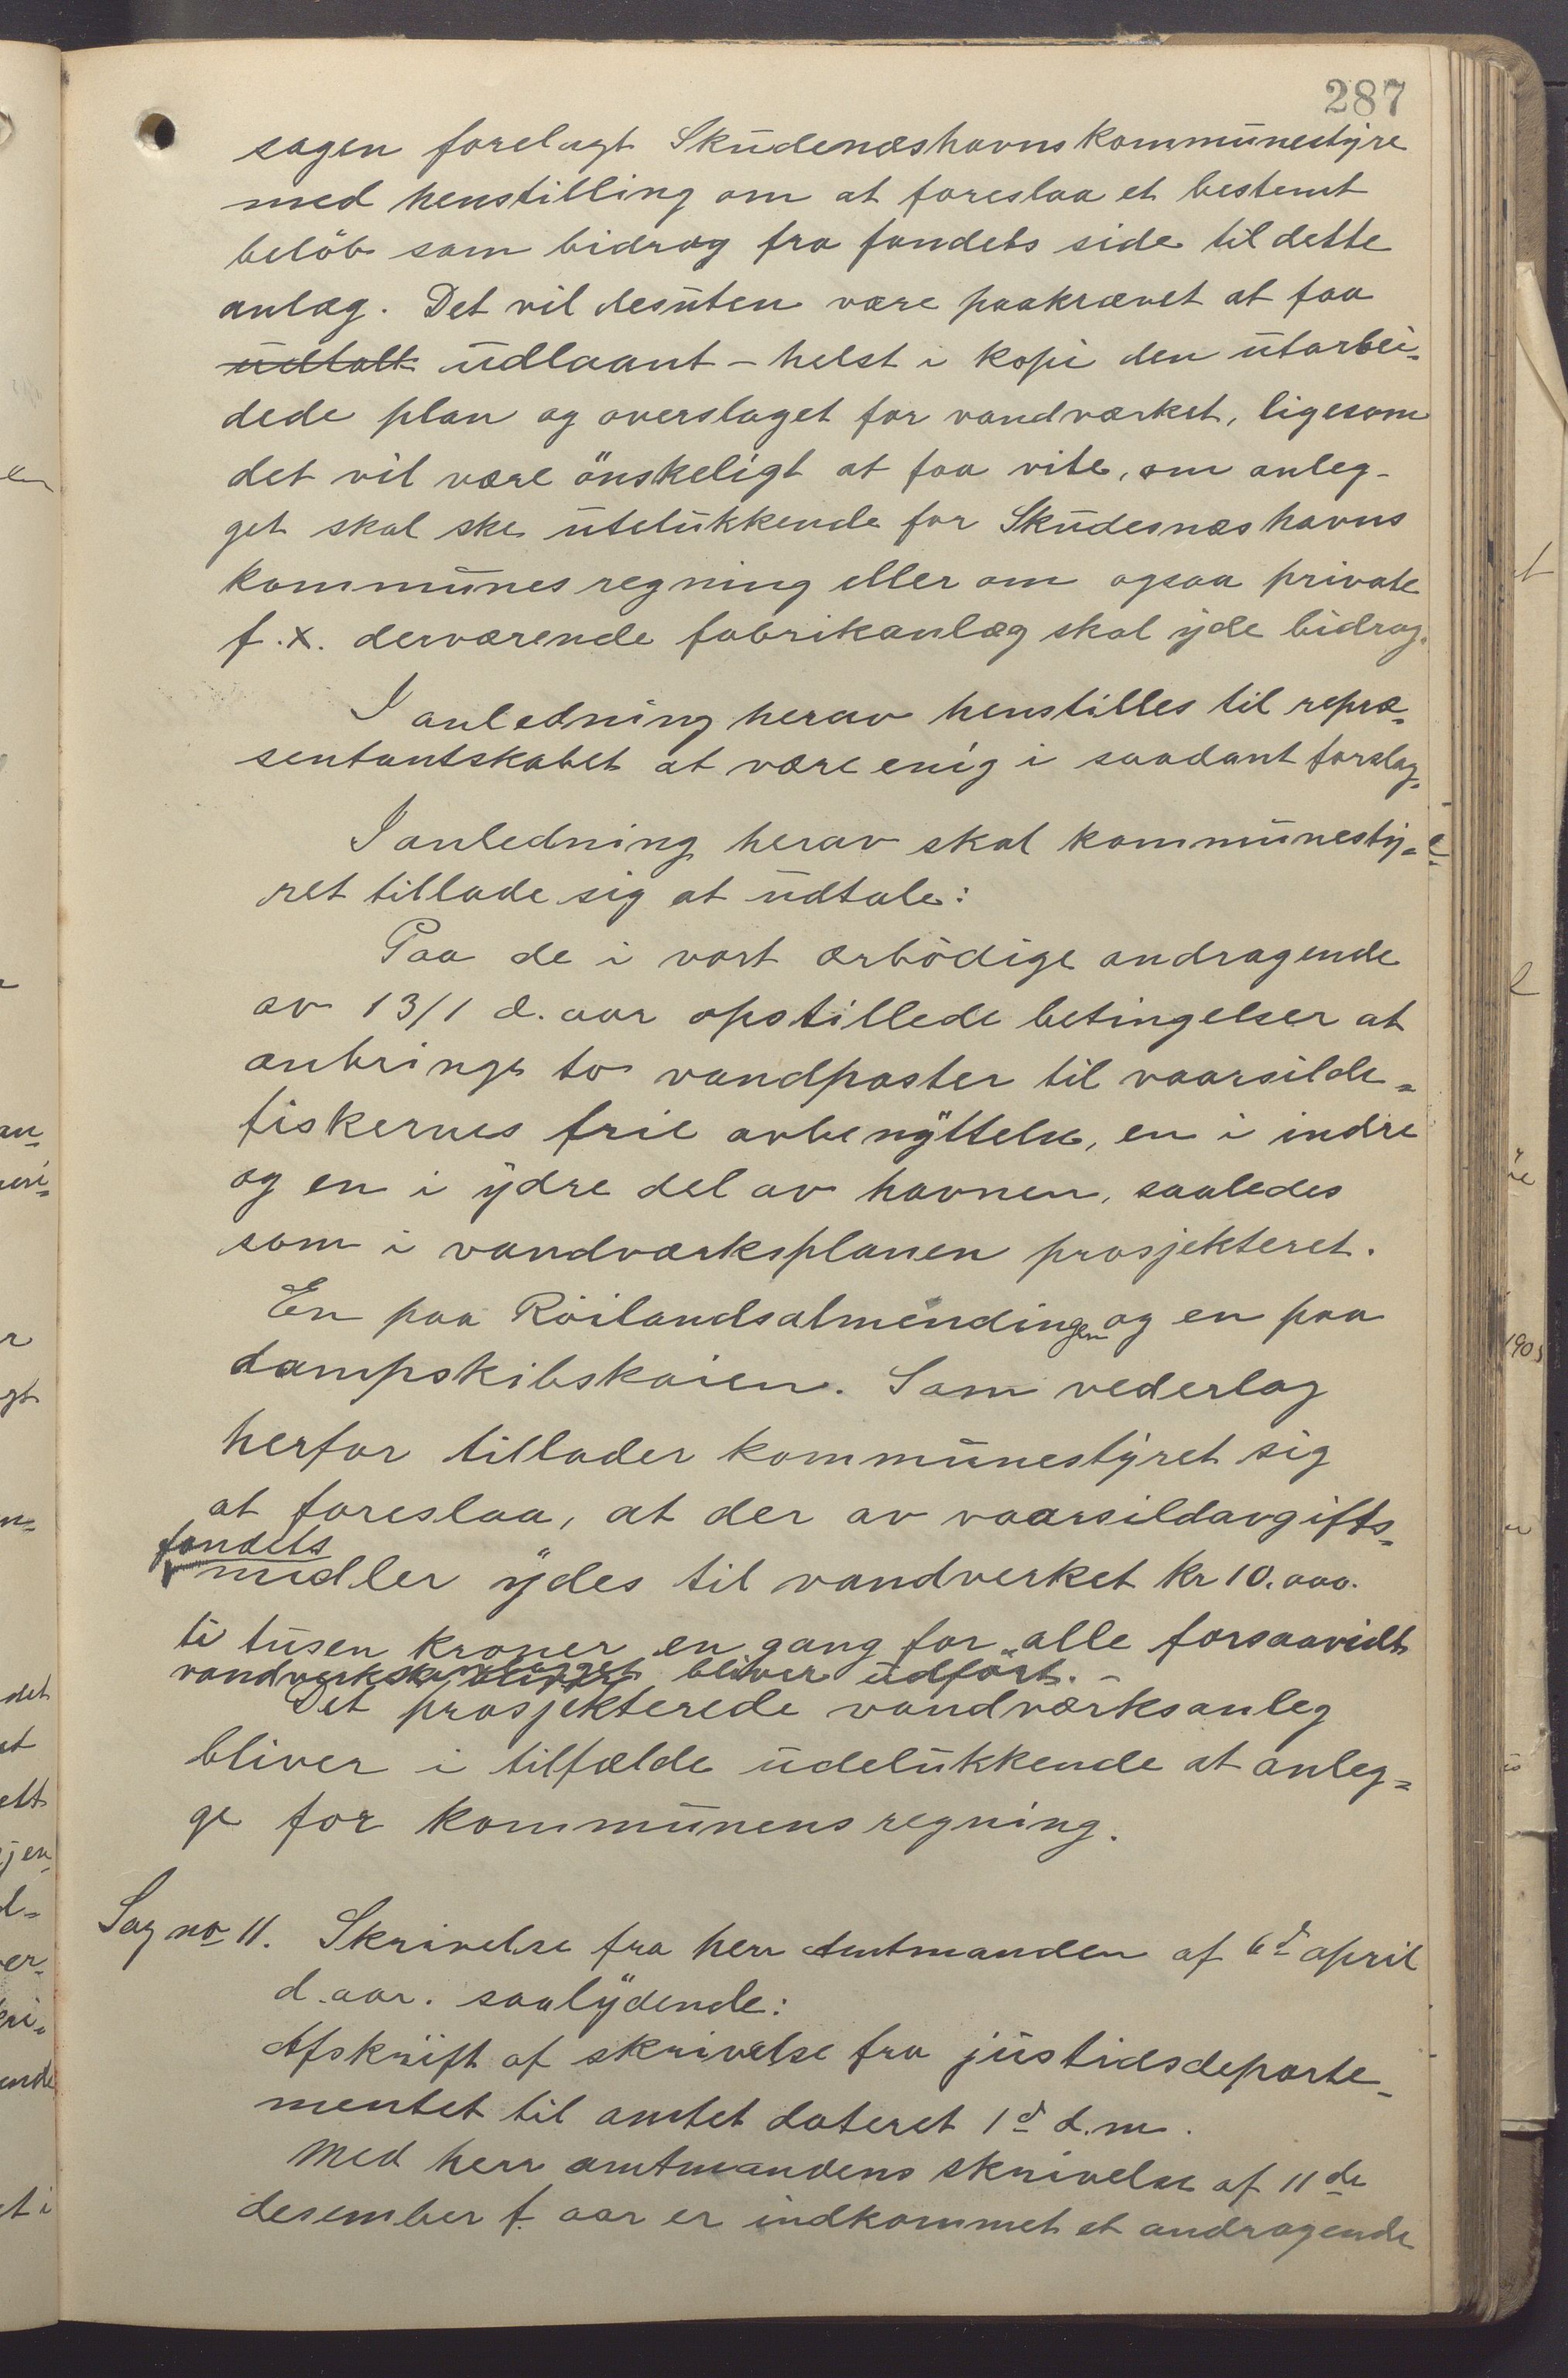 287
sagen forelagt Skudenæshavns kommunestyre
med henstilling om at foreslaa et bestemt
beløb som bidrag fra fondets side til dette
anlæg. Det vil desuten være paakrævet at faa
udtalt udlaant - helst i kopi den utarbei-
dede plan og overslaget for vandværket, ligesom
det vil være ønskeligt at faa vite, om anleg-
get skal ske utelukkende for Skudesnæshavns
kommunes regning eller om ogsaa private
f.x. derværende fabrikanlæg skal yde bidrag.
I anledning herav henstilles til repræ-
sentantskabet at være enig i saadant forslag.
I anledning herav skal kommunesty-
ret tillade sig at udtale:
Paa de i vort ærbødige andragende
av 13/1 d. aar opstillede betingelser at
anbringe to vandposter til vaarsilde-
fiskernes frie avbenyttelse, en i indre
og en i ydre del av havnen, saaledes
som i vandværksplanen prosjekteret.
En paa Röilandsalmendingen og en paa
dampskibskaien. Som vederlag
herfor tillader kommunestyret sig
at foreslaa, at der av vaarsildavgifts-
fondets
midler ydes til vandverket kr 10.000.
ti tusen kroner en gang for alle forsaavidt
vandverksanlegget bliver udført. -
Det prosjekterede vandværksanleg
bliver i tilfælde udelukkende at anleg-
ge for kommunens regning.
Sag no 11. Skrivelse fra herr Amtmanden af 6d april
d. aar. saalydende:
Afskrift af skrivelse fra justidsdeparte-
mentet til amtet dateret 1d d.m.
Med herr amtmandens skrivelse af 11de
desember f. aar er indkommet et andragende